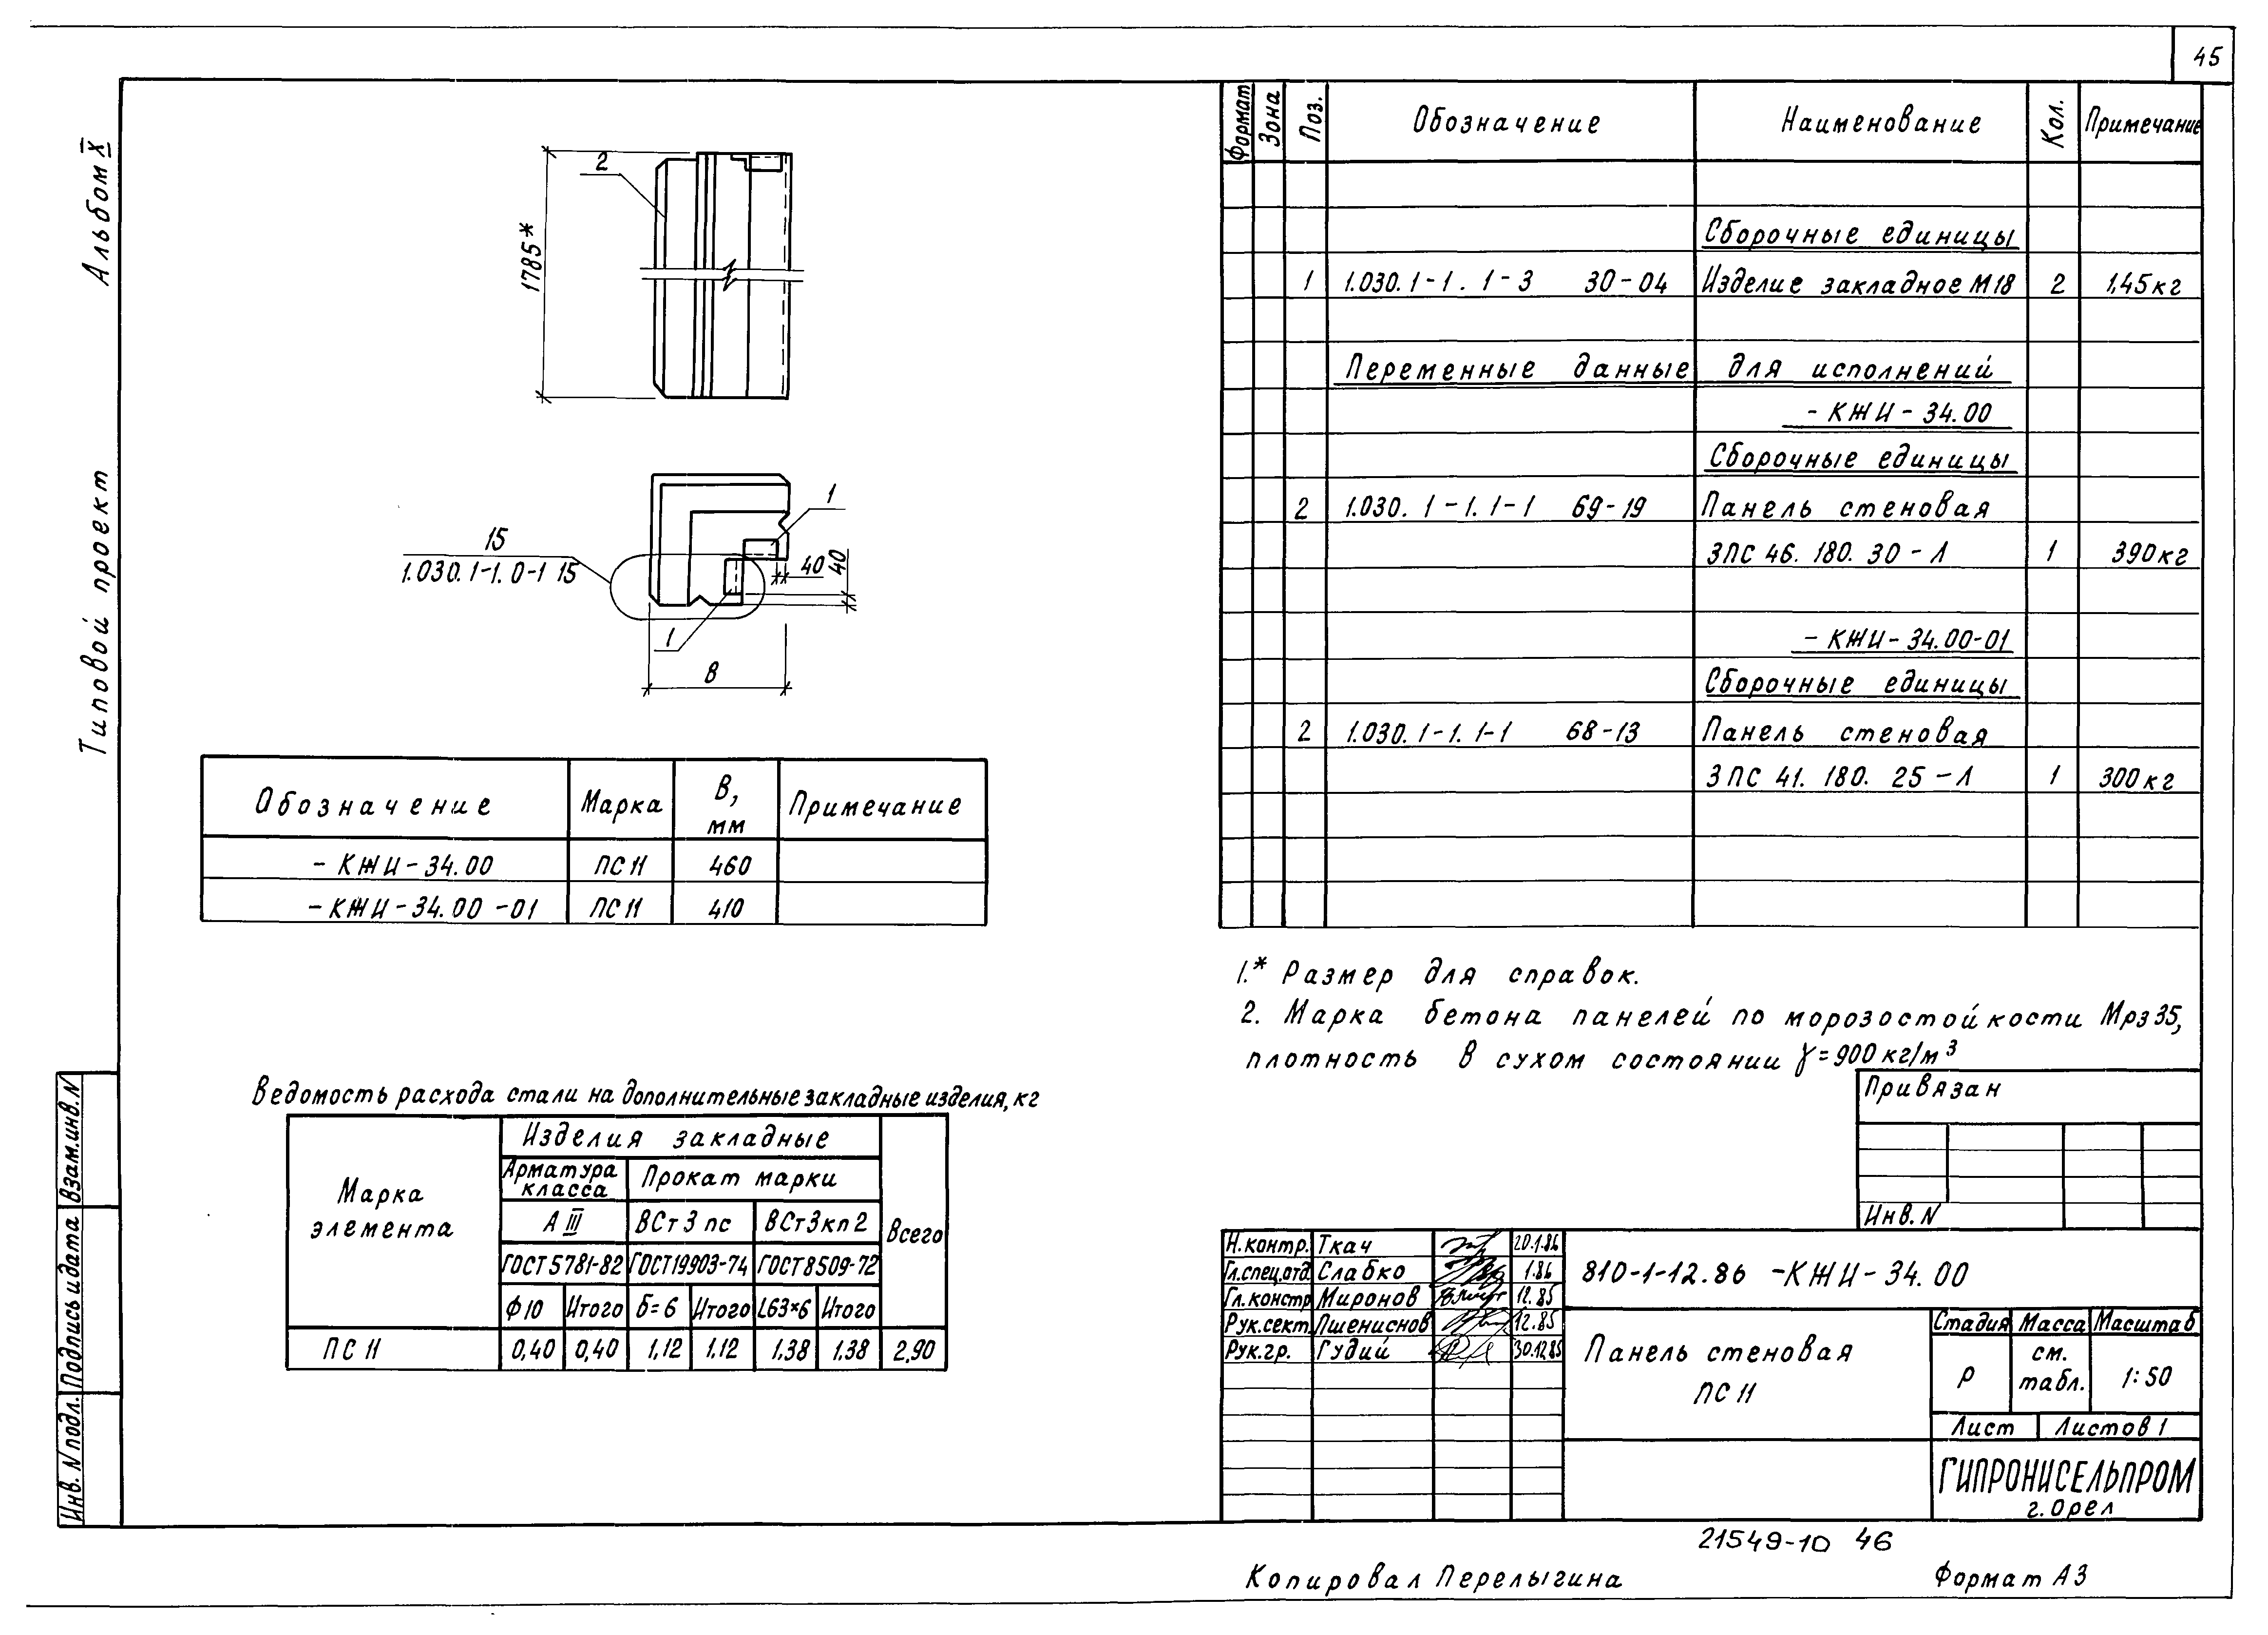 45
Альбом X
Типовой проект
2
1785*
1
15
1.030.1-1.0-1 15
40
40
1
В
Обозначение Марка В, мм Примечание
-КЖИ-34.00 ПС 11 460
-КЖИ-34.00-01 ПС 11 410
Ведомость расхода стали на дополнительные закладные изделия, кг
Марка элемента Изделия закладные Всего
Арматура класса Прокат марки
А III ВСт3пс ВСт3кп2
ГОСТ 5781-82 ГОСТ19903-74 ГОСТ8509-72
Ф10 Итого δ=6 Итого L63×6 Итого
ПС 11 0,40 0,40 1,12 1,12 1,38 1,38 2,90
Формат Зона Поз. Обозначение Наименование Кол. Примечание
Сборочные единицы
1 1.030.1-1.1-3 30-04 Изделие закладное М18 2 1,45кг
Переменные данные для исполнений
-КЖИ-34.00
Сборочные единицы
2 1.030.1-1.1-1 69-19 Панель стеновая
3ПС 46.180.30-Л 1 390кг
-КЖИ-34.00-01
Сборочные единицы
2 1.030.1-1.1-1 68-13 Панель стеновая
3ПС 41.180.25-Л 1 300кг
1.* Размер для справок.
2. Марка бетона панелей по морозостойкости Мрз35,
плотность в сухом состоянии γ=900кг/м³
Привязан
Инв.N
Н.контр. Ткач 20.1.86
Гл.спец.отд. Слабко 1.86
Гл.констр Миронов 12.85
Рук.сект. Пшениснов 12.85
Рук.гр. Гудий 30.12.85
810-1-12.86 -КЖИ-34.00
Панель стеновая
ПС 11
Стадия Масса Масштаб
Р см. табл. 1:50
Лист Листов 1
ГИПРОНИСЕЛЬПРОМ
г.Орел
Взам.инв.N
Подпись и дата
Инв.N подл.
21549-10 46
Копировал Перелыгина Формат А3